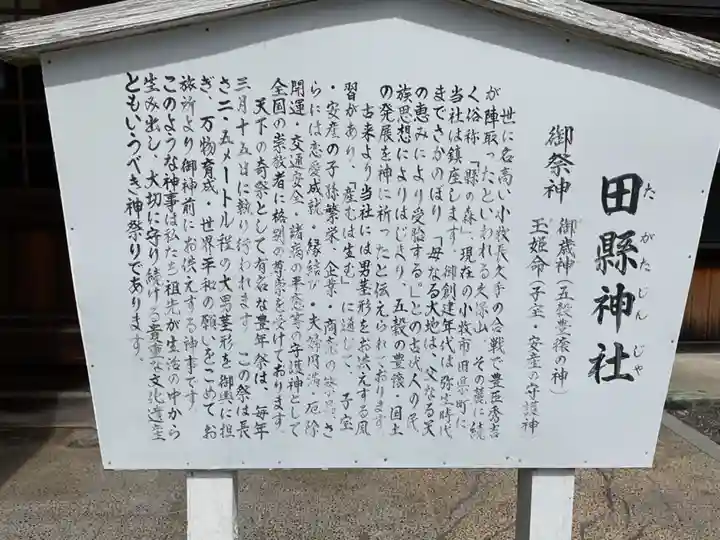 田縣神社
たがたじんじゃ
御祭神
御歳神(五穀豊穣の神)
玉姫命(子宝・安産の守護神)
世に名高い小牧長久手の合戦で豊臣秀吉
が陣取ったといわれる久保山、その麓に続
く俗称「縣の森」現在の小牧市田県町に
当社は鎮座します。御創建年代は弥生時代
までさかのぼり、「母なる大地は、父なる天
の恵みにより受胎する。」との古代人の民
族思想によりはじまり、五穀の豊穣・国土
の発展を神に祈ったと伝えられております。
古来より当社には男茎形をお供えする風
習があり、「産むは生む」に通じて、子宝
・安産の子孫繁栄・企業・商売の繁盛、さ
らには恋愛成就・縁結び・夫婦円満・厄除
開運・交通安全・諸病の平癒等の守護神として
全国の崇敬者に格別の尊崇を受けております。
天下の奇祭として有名な豊年祭は、毎年
三月十五日に執り行われます。この祭は長
さ二・五メートル程の大男茎形を御輿に担
ぎ、万物育成・世界平和の願いをこめてお
旅所より御神前にお供えする神事です。
このような神事は私たち祖先が生活の中から
生み出し、大切に守り続ける貴重な文化遺産
ともいうべき神祭りであります。